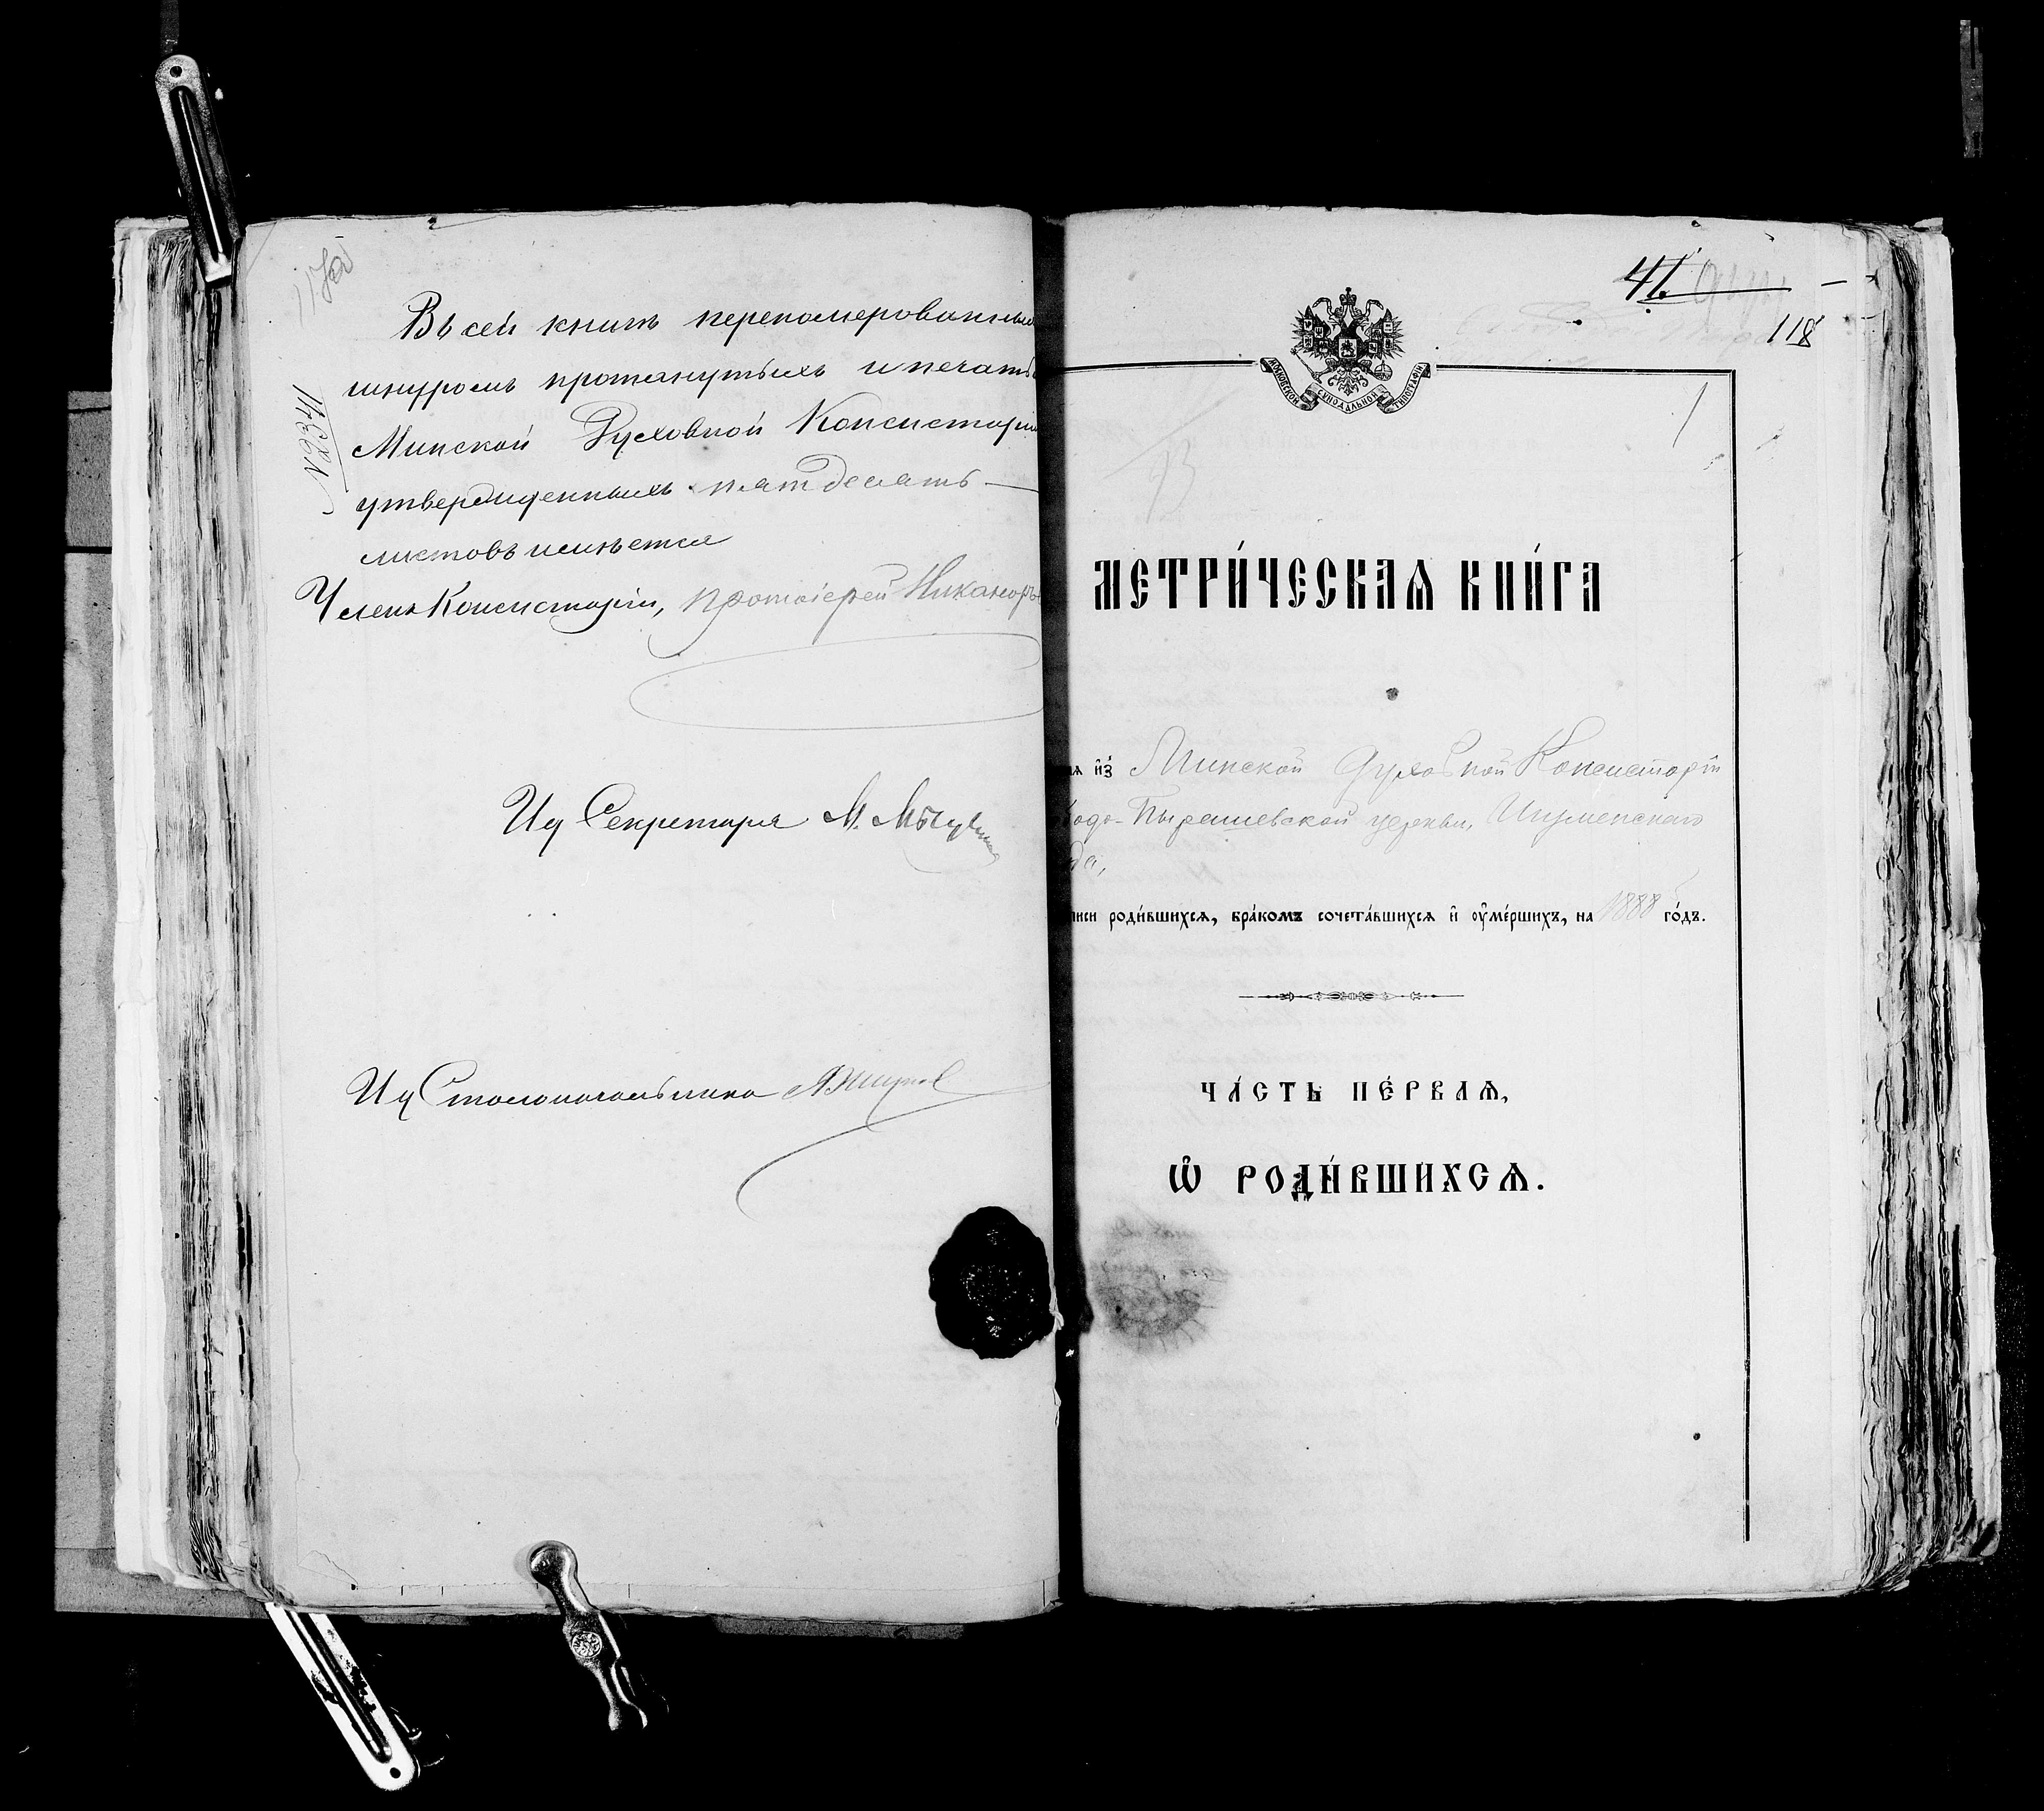 117об
№2341
Въ сей книгѣ перенумерованныхъ
шнуромъ протянутыхъ и печатью
Минской Духовной Консисторіи
утвержденныхъ пятдесятъ —
листовъ имѣется
Членъ Консисторіи, протоіерей Никаноръ
Ид Секретаря М.
Ид Столоначальника
41.
118
МОСКОВСКОЙ СУНОДАЛЬНОЙ ТИПОГРАФІИ
1
МЕТРИ́ЧЕСКАѦ КНИ́ГА
ѧ и҆з̾ Минской Духовной Консисторіи
Пырашевской церкви, Игуменскаго
да,
писи роди́вшихсѧ, бра́комъ сочета́вшихсѧ и҆ ѹ҆ме́ршихъ, на 1888 го́дъ.
ЧА́СТЬ ПЕ́РВАѦ,
Ѡ҆ РОДИ́ВШИХСѦ.